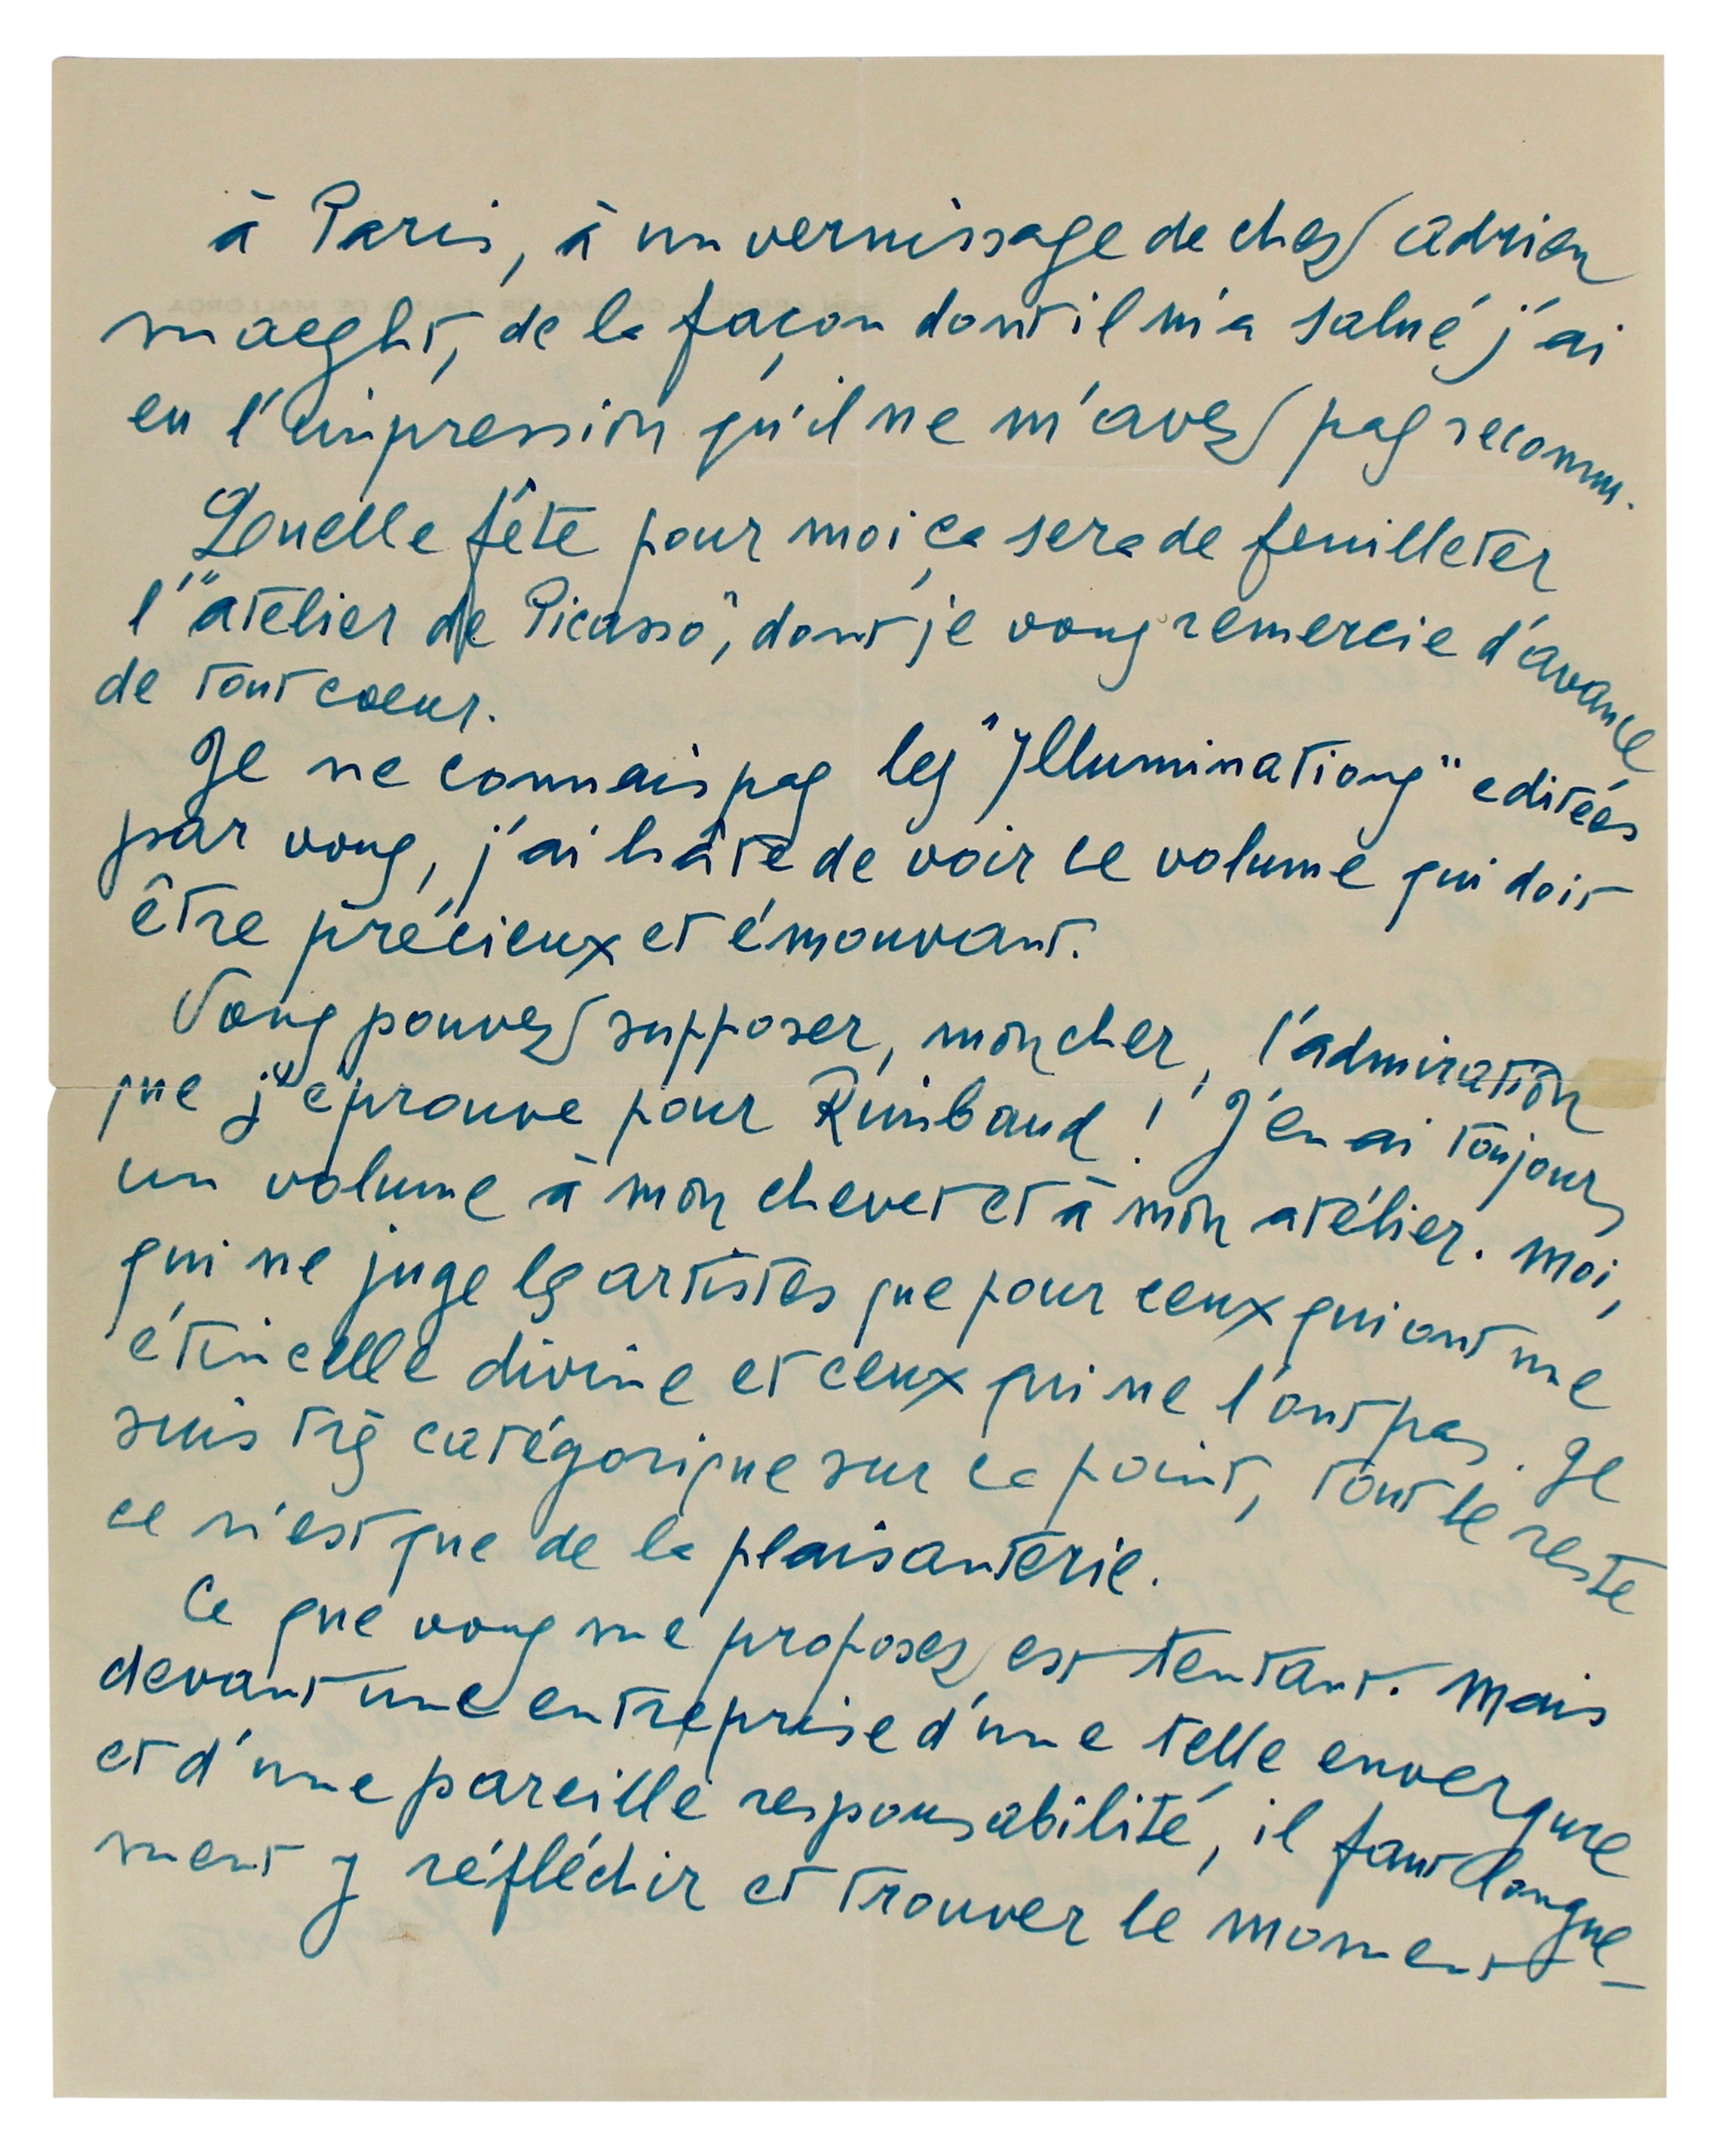 à Paris, à un vernissage de chez Adrien
Maeght, de la façon dont il m'a salué j'ai
eu l'impression qu'il ne m'avez pas reconnu.
Quelle fête pour moi ça sera de feuilleter
l'"atelier de Picasso", dont je vous remercie d'avance
de tout coeur.
Je ne connais pas les "Illuminations" editées
par vous, j'ai hâte de voir ce volume qui doit
être précieux et émouvant.
Vous pouvez supposer, mon cher, l'admiration
que j'éprouve pour Rimbaud! J'en ai toujours
un volume à mon chevet et à mon atélier. Moi,
qui ne juge les artistes que pour ceux qui ont une
étincelle divine et ceux qui ne l'ont pas. Je
suis très catégorique sur ce point, tout le reste
ce n'est que de la plaisanterie.
Ce que vous me proposez est tentant. Mais
devant une entreprise d'une telle envergure
et d'une pareille responsabilité, il faut longue-
ment y réfléchir et trouver le moment